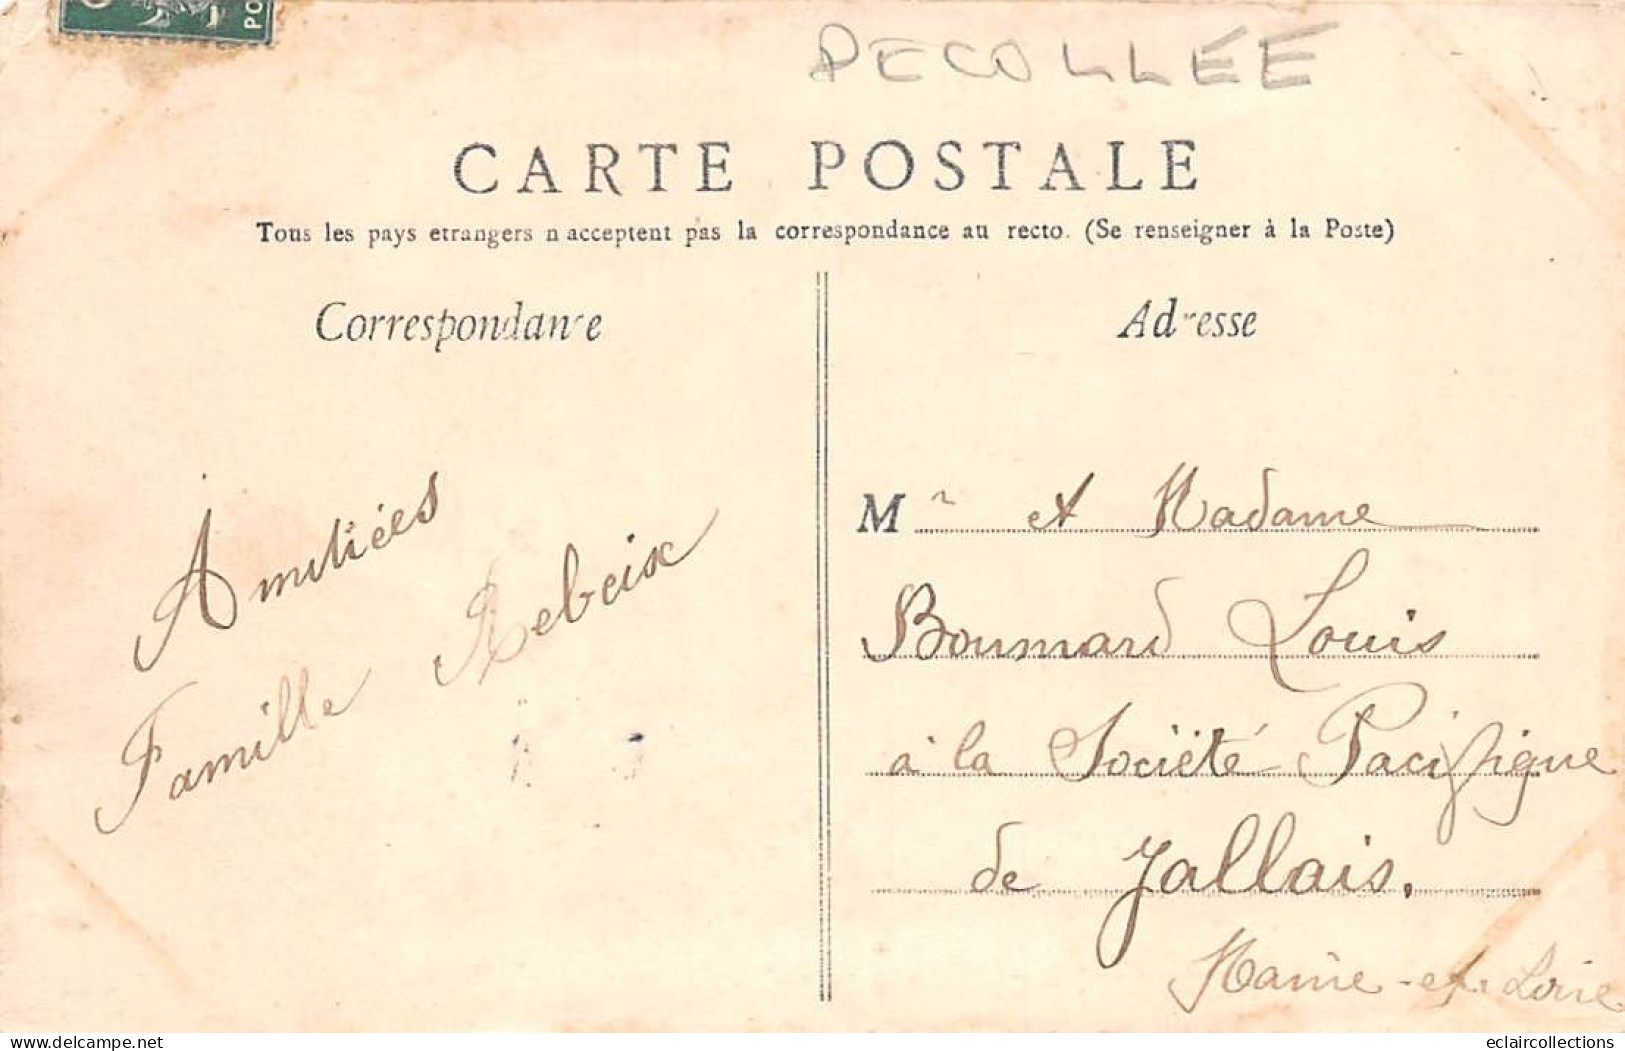 PO
DECOLLÉE
CARTE POSTALE
Tous les pays etrangers n acceptent pas la correspondance au recto. (Se renseigner à la Poste)
Correspondance
Adresse
Amitiées
Famille Rebeix
M r et Madame
Boumard Louis
à la Société Pacifique
de Jallais,
Maine-et-Loire
delcampe.net
eclaircollections